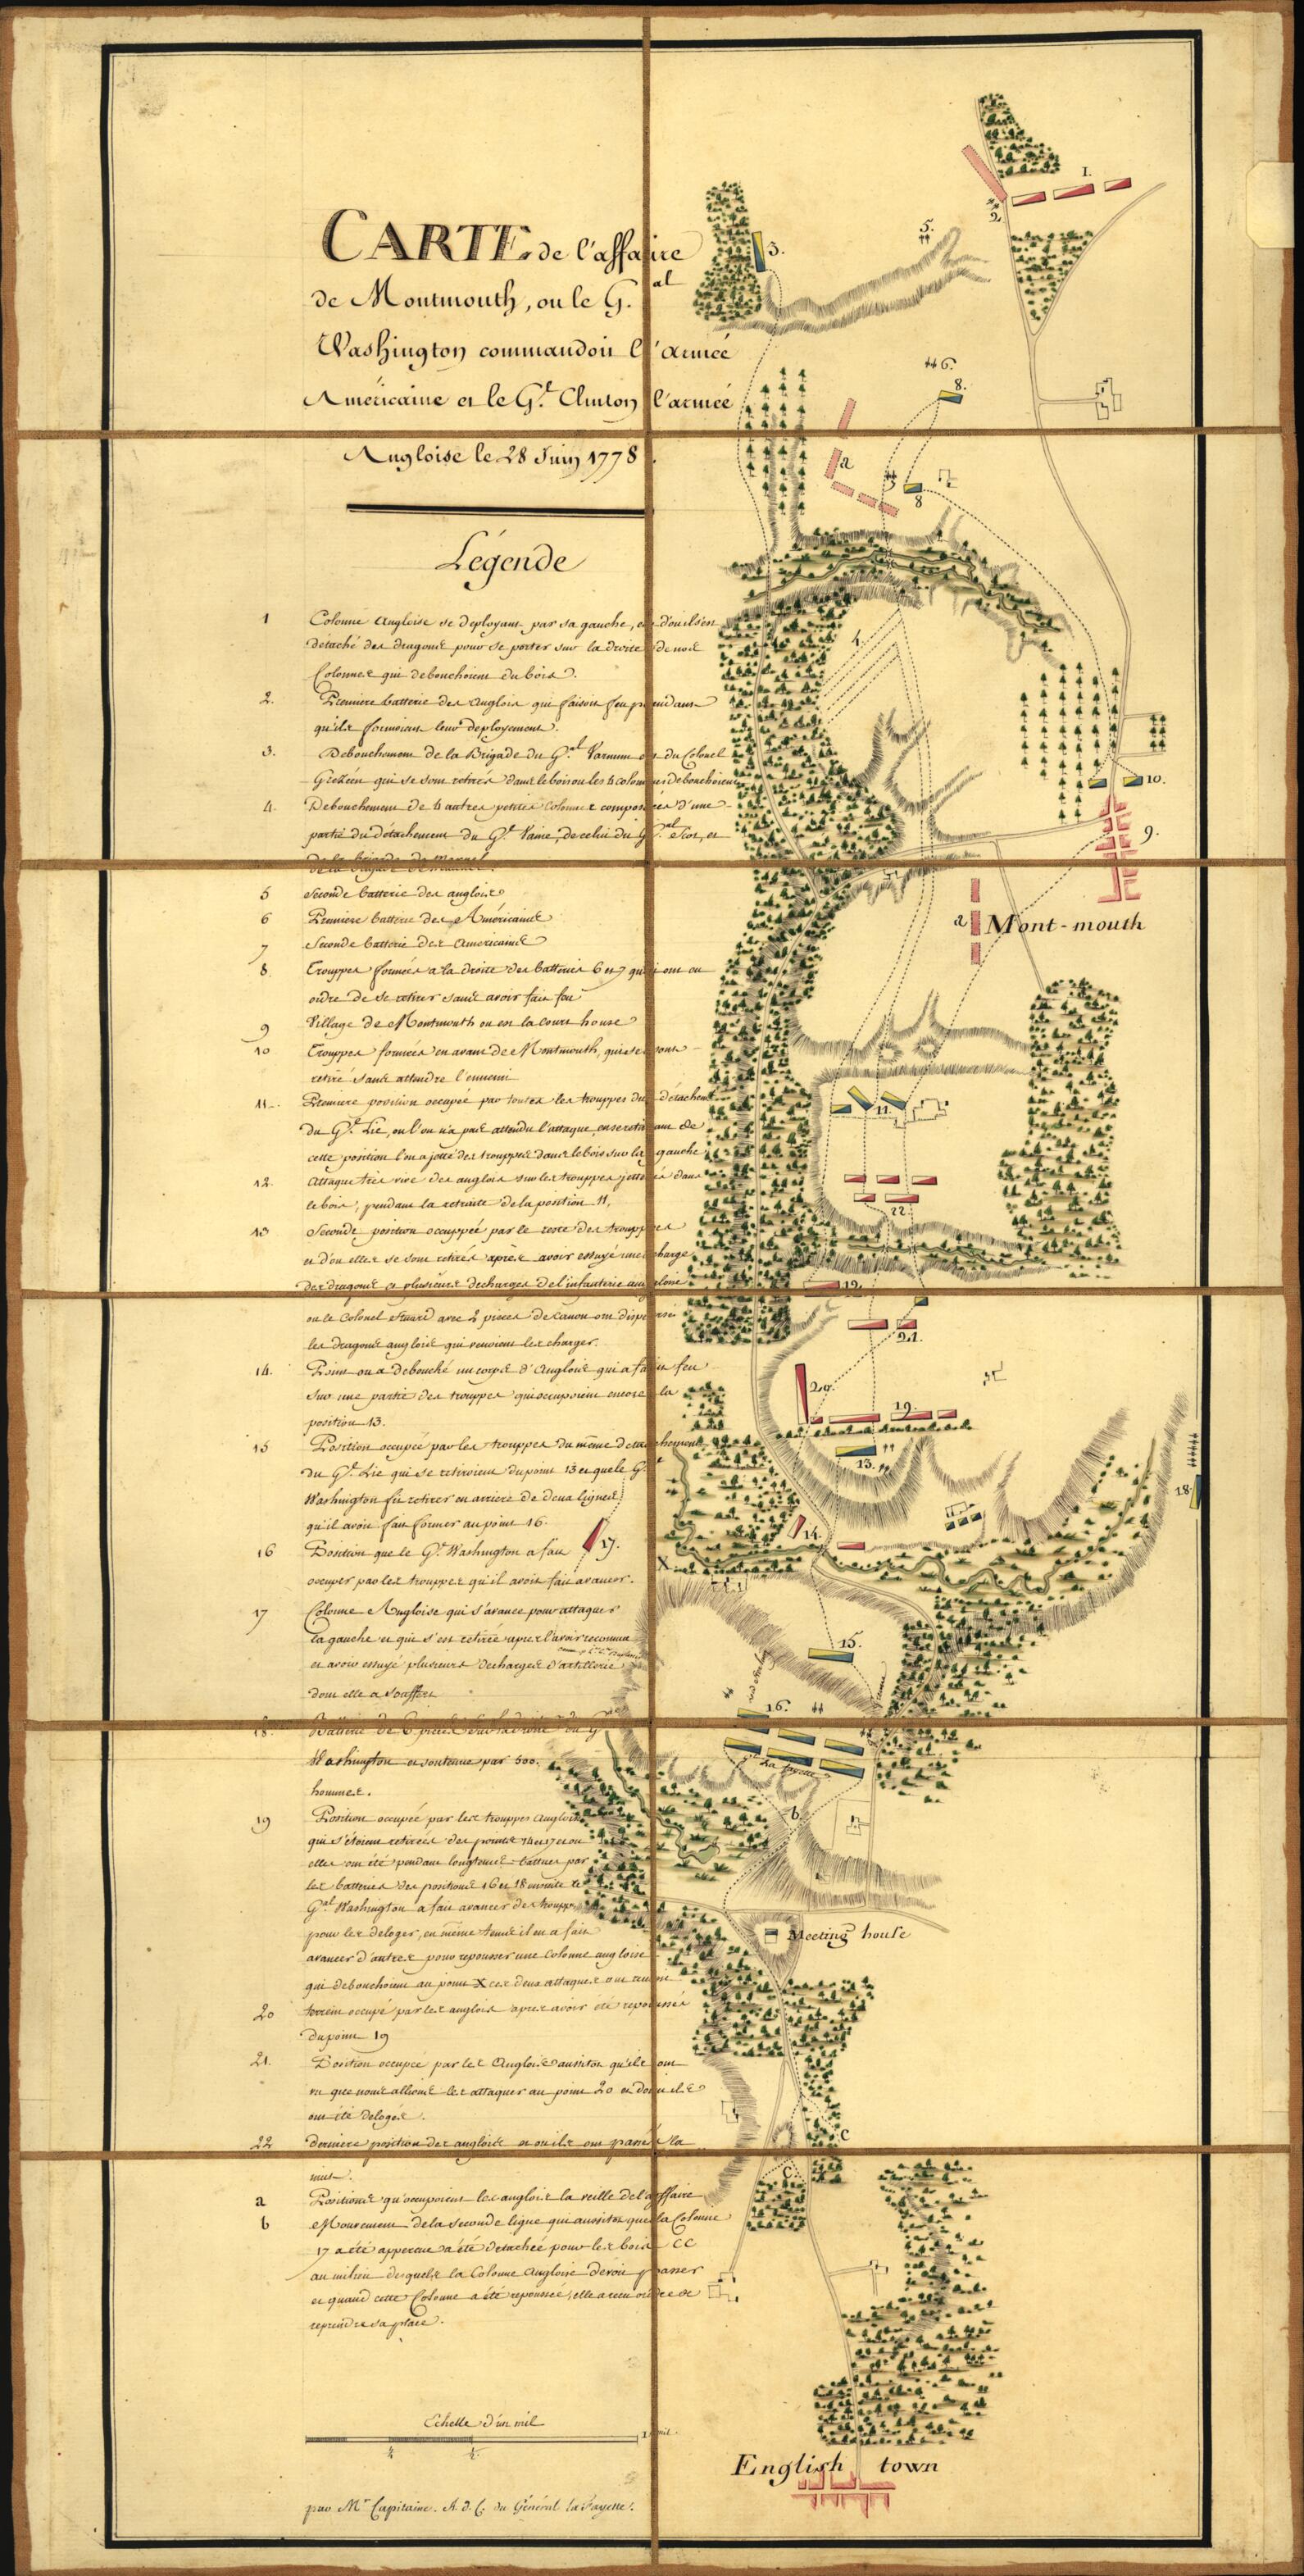 CARTE de l'affaire
de Montmouth, ou le G.al
Washington commandoit l'armée
Américaine et le G.l Clinton l'armée
Angloise le 28 Juin 1778.
Légende
1 Colonne Angloise se deployant par sa gauche, et d'ou il s'en
détaché des dragons pour se porter sur la droite de nos
Colonnes qui debouchoient du bois.
2. Premiere batterie des Anglois qui faisoit feu pendant
qu'ils formoient leur deployement.
3. Debouchement de la Brigade du G.al Varnum et du Colonel
qui se sont retirés dans le bois ou les 4 colonnes debouchoient
4. Debouchement de 4 autres petites Colonnes composées d'une
partie du détachement du G.l Vaine, de celui du G.al Scot, et
de la brigade de
5 Seconde batterie des anglois
6 Premiere batterie des Américains
7 Seconde batterie des Américains
8. Trouppes formées a la droite des batteries 6 et 7 qui ont eu
ordre de se retirer sans avoir fait feu
9 Village de Montmouth ou est la court house
10 Trouppes formées en avant de Montmouth, qui se sont
retiré sans attendre l'ennemi
11. Premiere position occupée par toutes les trouppes du détachem.
du G.l Lie, ou l'on n'a pas attendu l'attaque, en se retirant de
cette position l'on a jetté des trouppes dans le bois sur la gauche
12. Attaque très vive des anglois sur les trouppes jettées dans
le bois, pendant la retraite de la position 11.
13 Seconde position occuppée par le reste des trouppes
et d'ou elles se sont retirés après avoir essuyé une charge
des dragons et plusieurs decharges de l'infanterie angloise
ou le Colonel Stuard avec 2 pieces de canon ont dispersé
les dragons anglois qui venoient les charger.
14. Point ou a debouché un corps d'Anglois qui a fait feu
sur une partie des trouppes qui occupoient encore la
position 13.
15 Position occupée par les trouppes du même detachement
du G.l Lie qui se retiroient du point 13 et que le G.l
Washington fit retirer en arriere de deux lignes
qu'il avoit fait former au point 16.
16 Position que le G.l Washington a fait
occuper par les trouppes qu'il avoit fait avancer.
17 Colonne Angloise qui s'avance pour attaquer
la gauche et qui s'est retirée apres l'avoir reconnue
et avoir essuyé plusieurs decharges d'artillerie
dont elle a souffert
18. Batterie de 6 pieces sur la droite du G.
Washington et soutenue par 500.
hommes.
19 Position occupée par les trouppes Angloises
qui s'étoient retirées des points 14 et 17 et ou
elles ont été pendant longtems battues par
les batteries des positions 16 et 18 ensuite le
G.al Washington a fait avancer des trouppes
pour les deloger, en même tems il en a fait
avancer d'autres pour repousser une colonne angloise
qui debouchoient au point X ces deux attaques ont reussi
20 terrein occupé par les anglois apres avoir été repoussés
du point 19
21. Position occupée par les Anglois aussitot qu'ils ont
vu que nous allions les attaquer au point 20 et d'ou ils
ont été delogés.
22 derniere position des anglois et ou ils ont passé la
nuit.
a Positions qu'occupoient les anglois la veille de l'affaire
b Mouvement de la seconde ligne qui aussitot que la Colonne
17 a été apperçue a été détachée pour les bois CC
au milieu desquels la Colonne Angloise devoit passer
et quand cette Colonne a été repoussée, elle a recu ordre de
reprendre sa place.
Echelle d'un mil
1/4 1/2 1 mil.
par Mr Capitaine. A. d. C. du Général la Fayette.
1.
2
3.
5.
6.
8.
a
7
8
4.
10.
9.
a
Mont-mouth
11.
22
12.
21.
20.
19.
13.
18.
14.
17.
X
15.
16.
La fayette
b.
Meeting house
C
C.
English town